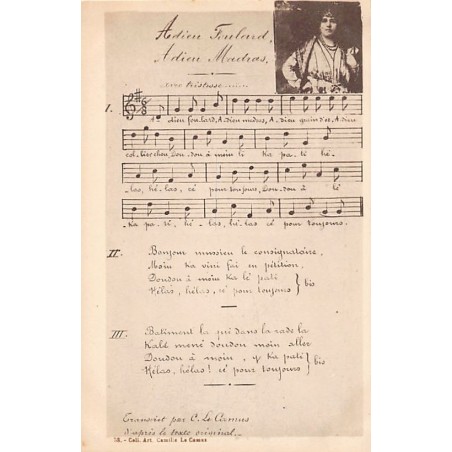 Adieu Foulard,
Adieu Madras.
avec tristesse......
I.
A-dieu foulard, A-dieu madras, A-dieu grain d'or, A-dieu
col-lier chou, Dou-dou à moin li ka pa-té hé-
las, hé-las, cé pour toujours, Dou-dou à lé
ka pa-ti, hé-las, hé-las cé pour toujours.
II. Bonjour missieu le consignataire,
Moin ka vini fai en pétition,
Doudou à moin ka lé pati } bis
Hélas, hélas, cé pour toujours
III. Batiment la qui dans la rade la
Kalé mené doudou moin aller
Doudou à moin, y ka pati } bis
Hélas, hélas! cé pour toujours
Transcrit par C. Le Camus
d'après le texte original.
58. - Coll. Art. Camille Le Camus